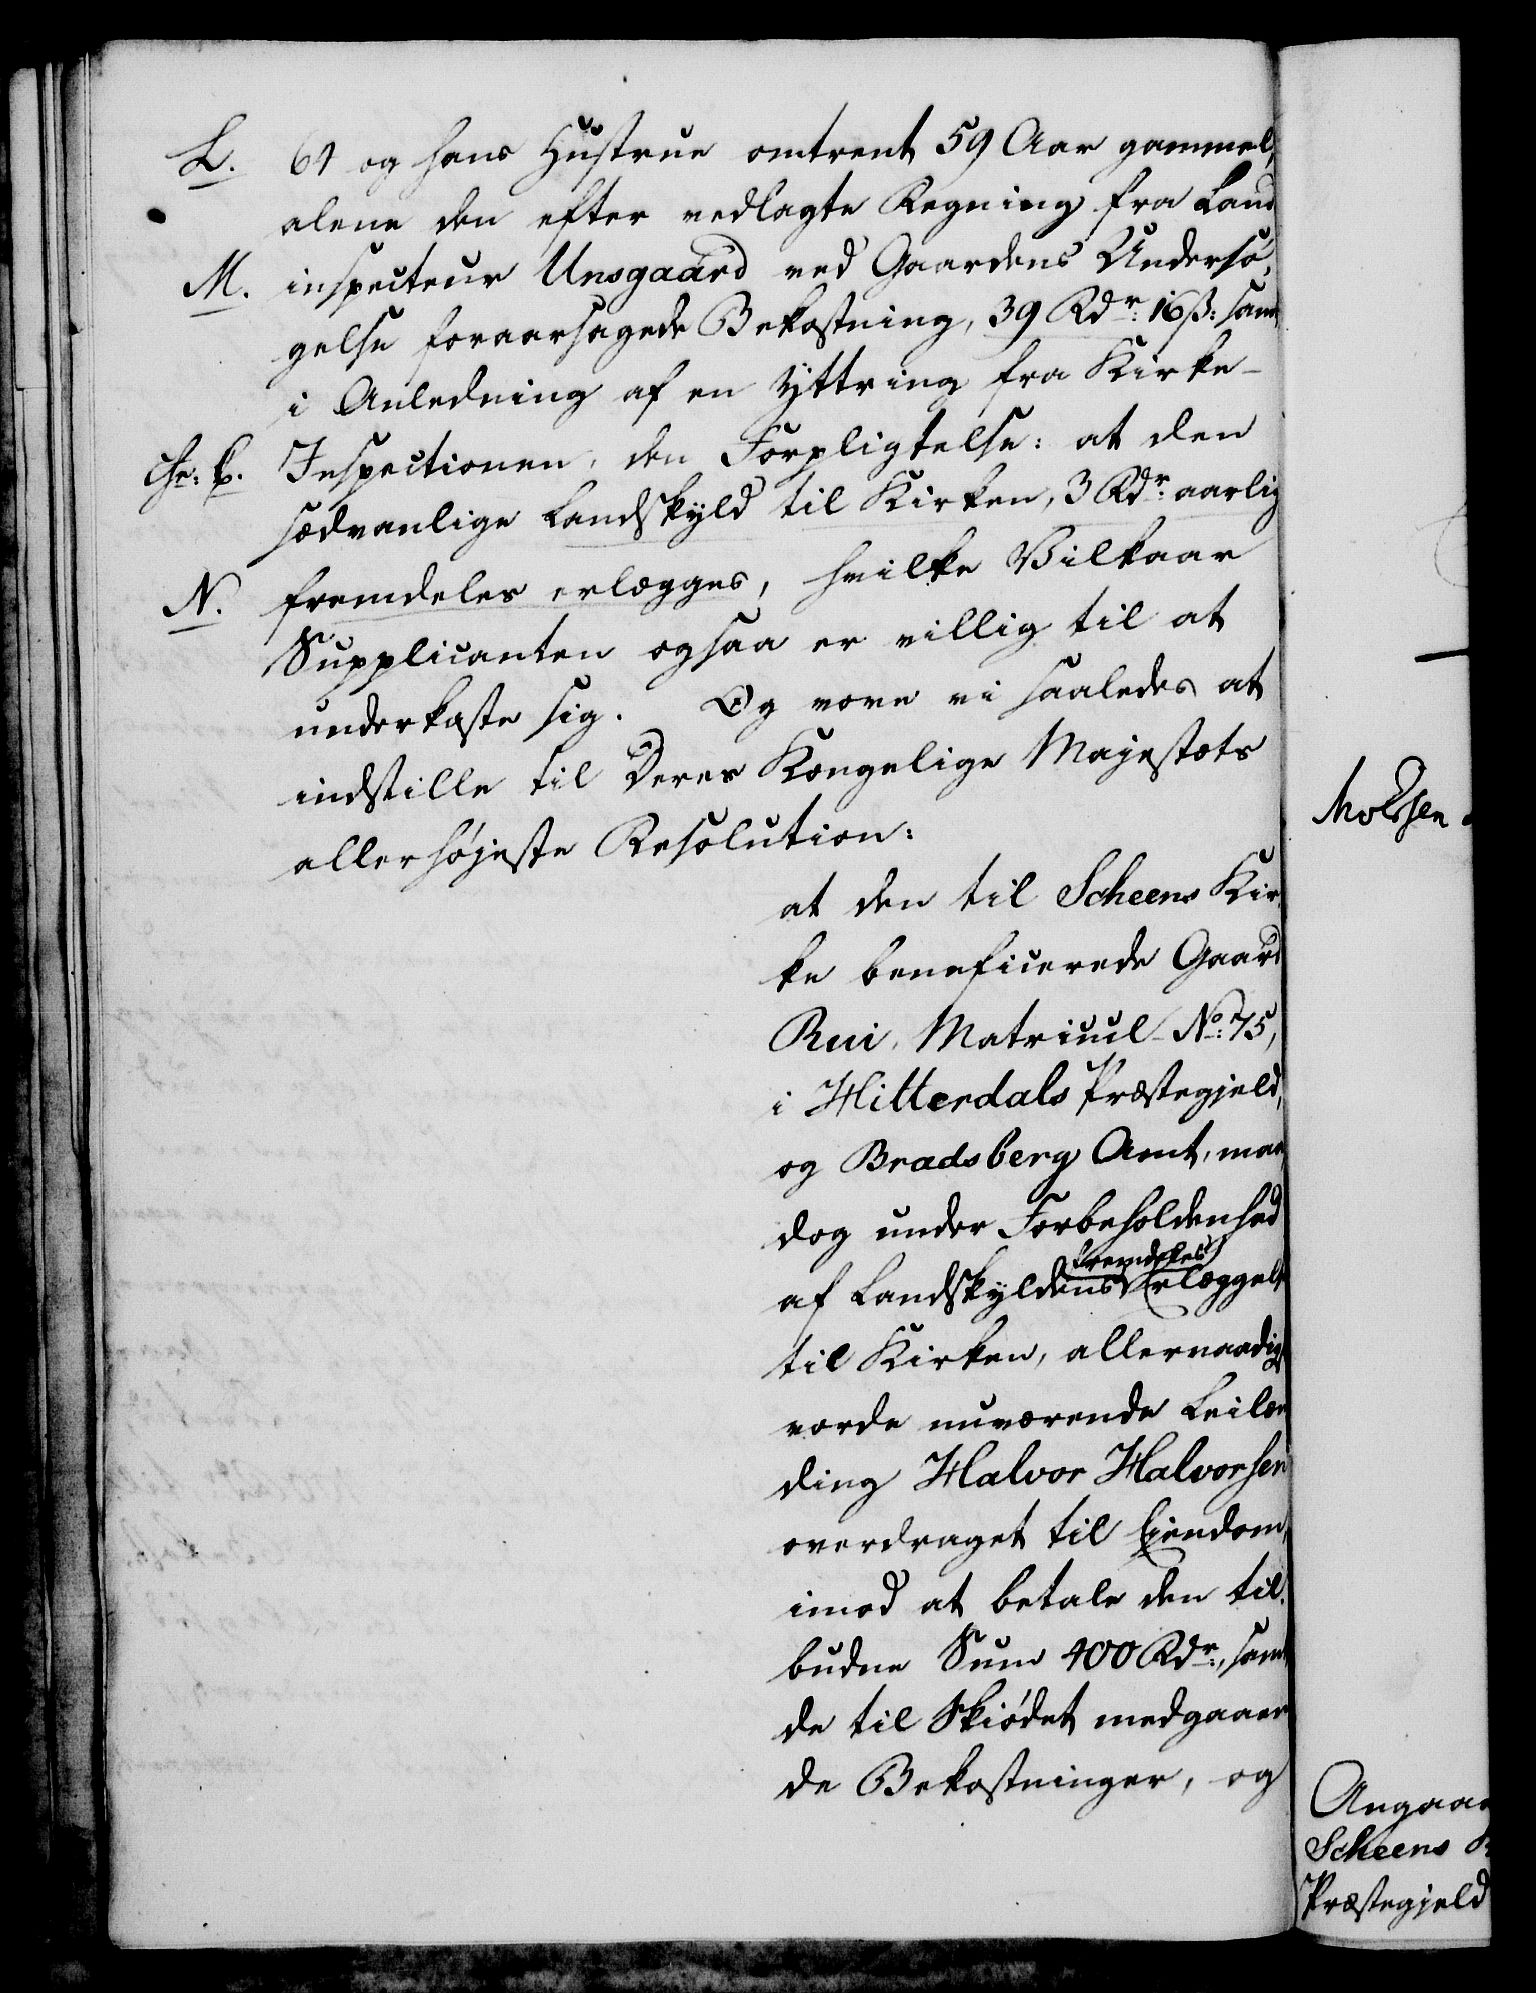 L. 64 og hans Hustrue omtrent 59 Aar gammel,
alene den efter vedlagte Regning fra Land
M. inspecteur Unsgaard ved Gaardens Undersø-
gelse foraarsagede Bekostning, 39 Rdr: 16 ß: samt
i Anledning af en Yttring fra Kirke-
Inspectionen, den Forpligtelse: at den
sædvanlige Landskyld til Kirken, 3 Rdr: aarlig
N. fremdeles erlægges, hvilke Vilkaar
Supplicanten ogsaa er villig til at
underkaste sig. Og vove vi saaledes at
indstille til Deres Kongelige Majestæts
allerhøjeste Resolution:
at den til Scheens Kir-
ke beneficerede Gaard
Rui, Matricul No: 75,
i Hitterdals Præstegjeld,
og Bradsberg Amt, maa
dog under Forbeholdenhed
fremdeles
af Landskyldens Erlæggelse
til Kirken, allernaadigst
vorde nuværende Leilæn
ding Halvor Halvorsen
overdraget til Ejendom,
imod at betale den til-
budne Sum 400 Rdr:, samt
de til Skiødet medgaaen
de Bekostninger, og
Angaa
Scheens K
Præstegjeld